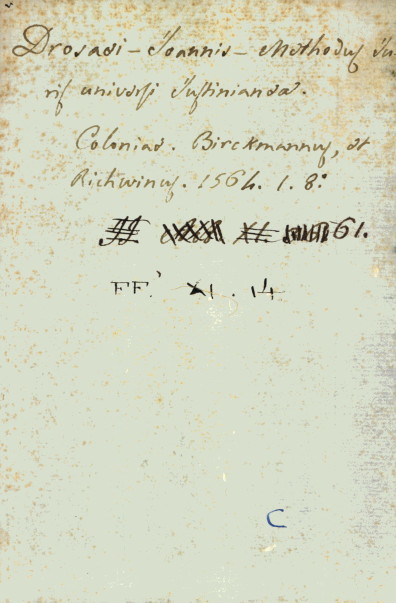 Drosaei - Joannis - Methodus Ju-
ris universi Justinianaea.
Coloniae. Birckmannus, et
Richwinus. 1564. 1. 8:
61.
EE. XI. 14
C